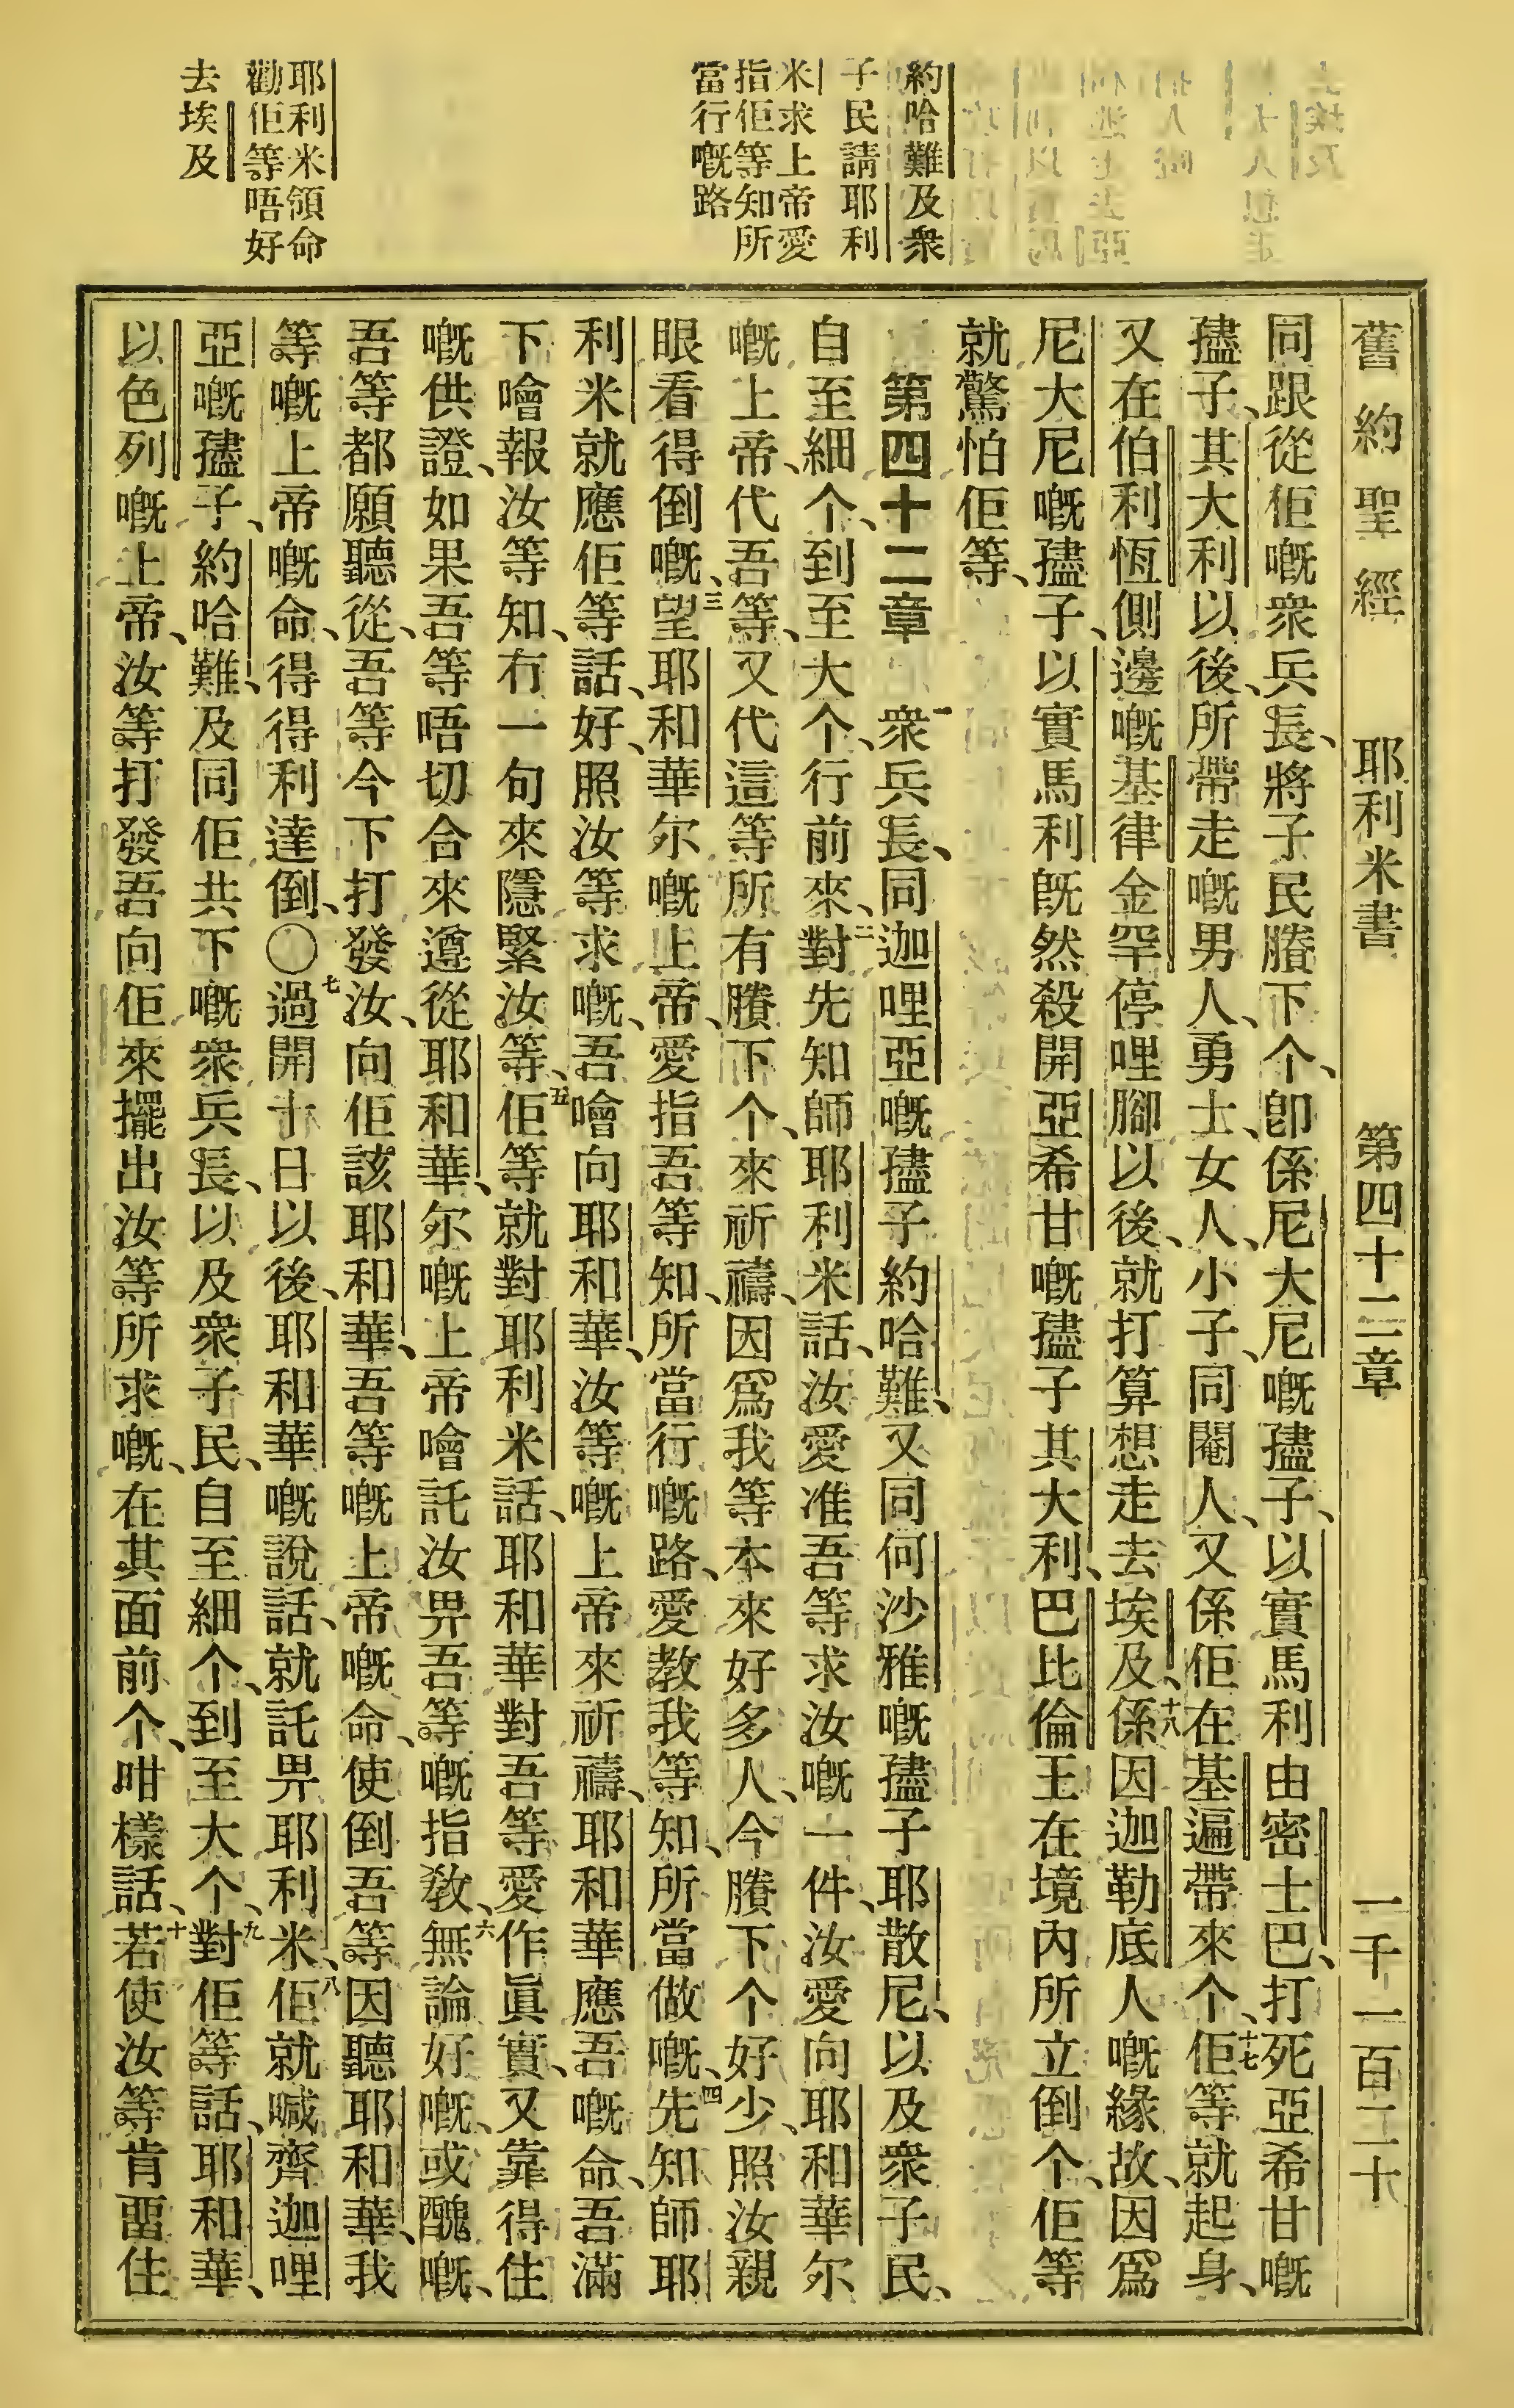 約哈難及衆
子民請耶利
米求上帝愛
指佢等知所
當行嘅路
耶利米領命
勸佢等唔好
去埃及
舊約聖經 耶利米書 第四十二章 一千一百二十
同跟從佢嘅衆兵長、將子民賸下个、卽係尼大尼嘅孻子、以實馬利由密士巴、打死亞希甘嘅
孻子、其大利以後、所帶走嘅男人、勇士、女人、小子、同閹人、又係佢在基遍帶來个、十七佢等就起身、
又在伯利恆側邊嘅基律金罕停哩腳以後、就打算想走去埃及、十八係因迦勒底人嘅緣故、因爲
尼大尼嘅孻子、以實馬利旣然殺開亞希甘嘅孻子其大利、巴比倫王在境內所立倒个、佢等
就驚怕佢等、
第四十二章 一衆兵長、同迦哩亞嘅孻子約哈難、又同何沙雅嘅孻子耶散尼、以及衆子民、
自至細个、到至大个、行前來、二對先知師耶利米話、汝愛准吾等求汝嘅一件、汝愛向耶和華尔
嘅上帝、代吾等、又代這等所有賸下个、來祈禱、因爲我等本來好多人、今賸下个好少、照汝親
眼看得倒嘅、三望耶和華尔嘅上帝、愛指吾等知、所當行嘅路、愛教我等知、所當做嘅、四先知師耶
利米就應佢等話、好、照汝等求嘅、吾噲向耶和華、汝等嘅上帝來祈禱、耶和華應吾嘅命、吾滿
下噲報汝等知、冇一句來隱緊汝等、五佢等就對耶利米話、耶和華對吾等愛作眞實、又靠得住
嘅供證、如果吾等唔切合來遵從耶和華、尔嘅上帝噲託汝畀吾等嘅指教、六無論好嘅、或醜嘅、
吾等都願聽從、吾等今下打發汝、向佢該耶和華、吾等嘅上帝嘅命、使倒吾等因聽耶和華、我
等嘅上帝嘅命、得得利達倒、〇七過開十日以後、耶和華嘅說話、就託畀耶利米、八佢就喊齊迦哩
亞嘅孻子、約哈難、及同佢共下嘅衆兵長、以及衆子民、自至細个、到至大个、九對佢等話、耶和華、
以色列嘅上帝、汝等打發吾向佢來擺出汝等所求嘅、在其面前个、咁樣話、十若使汝等肯畱住